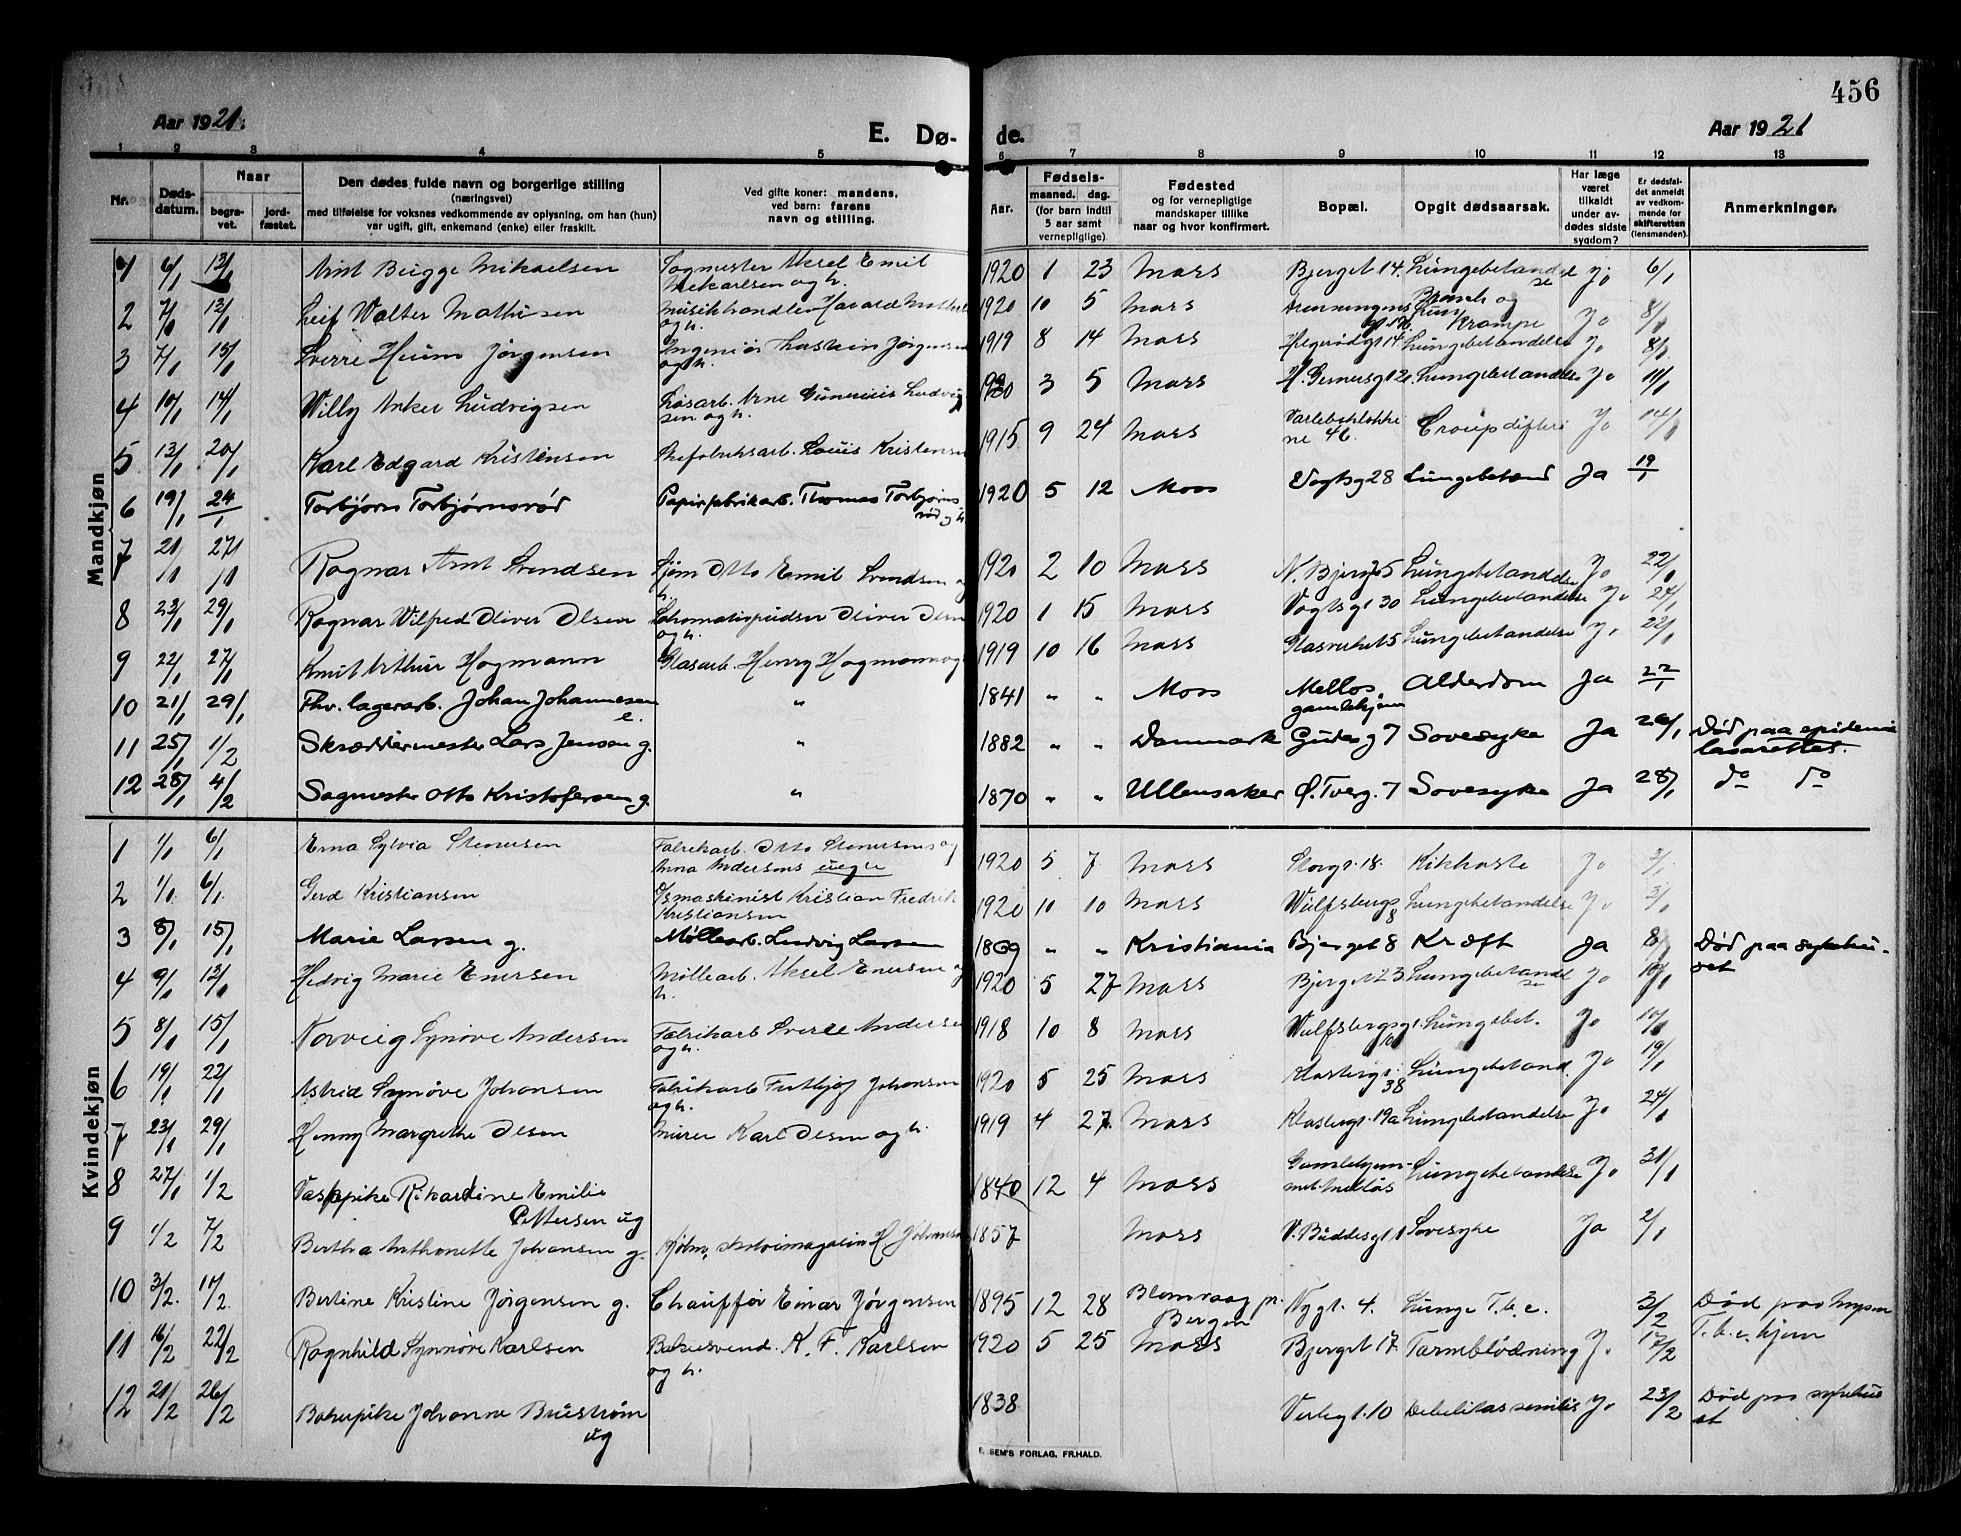 456
Aar 1921.
E. Dø- de.
Aar 1921
1 2 3 4 5 6 7 8 9 10 11 12 13
Nr.
Døds-datum.
Naar
begra-vet.
jord-fæstet.
Den dødes fulde navn og borgerlige stilling
(næringsvei)
med tilføielse for voksnes vedkommende av oplysning, om han (hun)
var ugift, gift, enkemand (enke) eller fraskilt.
Ved gifte koner: mandens,
ved barn: farens
navn og stilling.
Aar.
Fødsels-
maaned. dag.
(for barn indtil
5 aar samt
vernepligtige).
Fødested
og for vernepligtige
mandskaper tillike
naar og hvor konfirmert.
Bopæl.
Opgit dødsaarsak.
Har læge
været
tilkaldt
under av-
dødes sidste
sygdom?
Er dødsfal-
det anmeldt
av vedkom-
mende for
skifteretten
(lensmanden).
Anmerkninger.
Mandkjøn
1 6/1 13/1 Arnt Bugge Mikaelsen Sagmester Aksel Emil 1920 1 23 Moss Bjerget 14. Lungebetændel Jo 6/1
og h. se
2 7/1 13/1 Leif Walter Mathisen Musikhandler Harald 1920 10 5 Moss Bronch og Jo 8/1
og h. Krampe
3 7/1 15/1 Sverre Heum Jørgensen Ingeniør Jørgensen 1919 8 14 Moss Lungebetændelse Jo 8/1
og h.
4 10/1 14/1 Willy Anker Ludvigsen Løsarb. Arne Ludvig 1920 3 5 Moss Lungebetændelse Jo 11/1
sen og h.
5 13/1 20/1 Karl Edgard Kristensen Louis Kristensen 1915 9 24 Moss Croup difteri Jo 14/1
ne 46.
6 19/1 24/1 Torbjørn Torbjørnsrød Papirfabrikarb. Thomas Torbjørns 1920 5 12 Moss Vogtsg 28 Lungebetænd Ja 19/1
rød og h.
7 21/1 27/1 Ragnar Arnt Svendsen Sjøm Otto Emil Svendsen og 1920 2 10 Moss N. Bjerg 5 Lungebetændelse Jo 22/1
h.
8 23/1 29/1 Ragnar Wilfred Oliver Olsen Lokomotivpudser Oliver Olsen 1920 1 15 Moss Vogtsgt 30 Lungebetændelse Jo 24/1
og h.
9 22/1 27/1 Knut Arthur Hagmann Glasarb. Henry Hagmann og 1919 10 16 Moss Glasverket 5 Lungebetændelse Jo 22/1
10 21/1 29/1 Fhv. lagerarb. Johan Johannesen e. " 1841 " " Moss Mellos gamlehjem Alderdom Ja 22/1
11 25/1 1/2 Skræddermester Lars Jensen g. " 1882 " " Danmark Gudesg 7 Sovesyke Ja 26/1 Død paa epidemi
lasarettet.
12 28/1 4/2 Sagmester Otto Kristofersen g. " 1870 " " Ullensaker Ø. Tverg. 7 Sovesyke Ja 28/1 do do
Kvindekjøn
1 1/1 6/1 Erna Sylvia Stenersen Fabrikarb. Otto Stenersens og 1920 5 7 Moss Storgt. 18. Kikhoste Jo 3/1
Anna Andersens uegte
2 1/1 6/1 Gerd Kristiansen Ismaskinist Kristian Fredrik 1920 10 10 Moss Wulfsbergs 8 Lungebetændelse Jo 3/1
Kristiansen
3 8/1 15/1 Marie Larsen g. Møllearb. Ludvig Larsen 1869 " " Kristiania Bjerget 8 Kræft Ja 8/1 Død paa sykehu-
set
4 9/1 13/1 Hedvig Marie Enersen Møllearb. Aksel Enersen og 1920 5 27 Moss Bjerget 23 Lungebetændel Jo 10/1
h. se
5 8/1 15/1 Norveig Synøve Andersen Fabrikarb Sverre Andersen 1918 10 8 Moss Wulfsbergsgt. Lungebet. Jo 10/1
og h.
6 19/1 22/1 Astrid Synøve Johansen Fabrikarb Fritjof Johansen 1920 5 25 Moss 38 Lungebetænd. Jo 19/1
og h.
7 23/1 29/1 Henny Margrethe Olsen Murer Karl Olsen og h. 1919 4 27 Moss 19a Lungebetændelse Jo 24/1
8 27/1 1/2 Vaskepike Rikardine Emilie 1840 12 4 Moss Gamlehjem- Lungebetændelse Jo 31/1
Pettersen ug met Melløs
9 1/2 7/2 Bertha Anthonette Johansen g. H. Johansen 1857 Moss Sovesyke Ja 2/1
10 3/2. 11/2 Bertine Kristine Jørgensen g. Chauffør Einar Jørgensen 1895 12 28 Blomvaag pr. Bergen Nygt. 4. Lunge T.b.c. 3/2 Død paa Mysen
T.b.c. hjem
11 16/2 22/2 Ragnhild Synnøve Karlsen Bakersvend. K. F. Karlsen 1920 5 25 Moss Bjerget 17. Tarmblødning Jo 17/2
og h.
12 21/2 26/2 Bakerpike Johanne Brustrøm 1838 Verlegt. 10 Debelitas senilis Jo 23/2 Død paa sykehus
ug et
E. SEM'S FORLAG, FR.HALD.